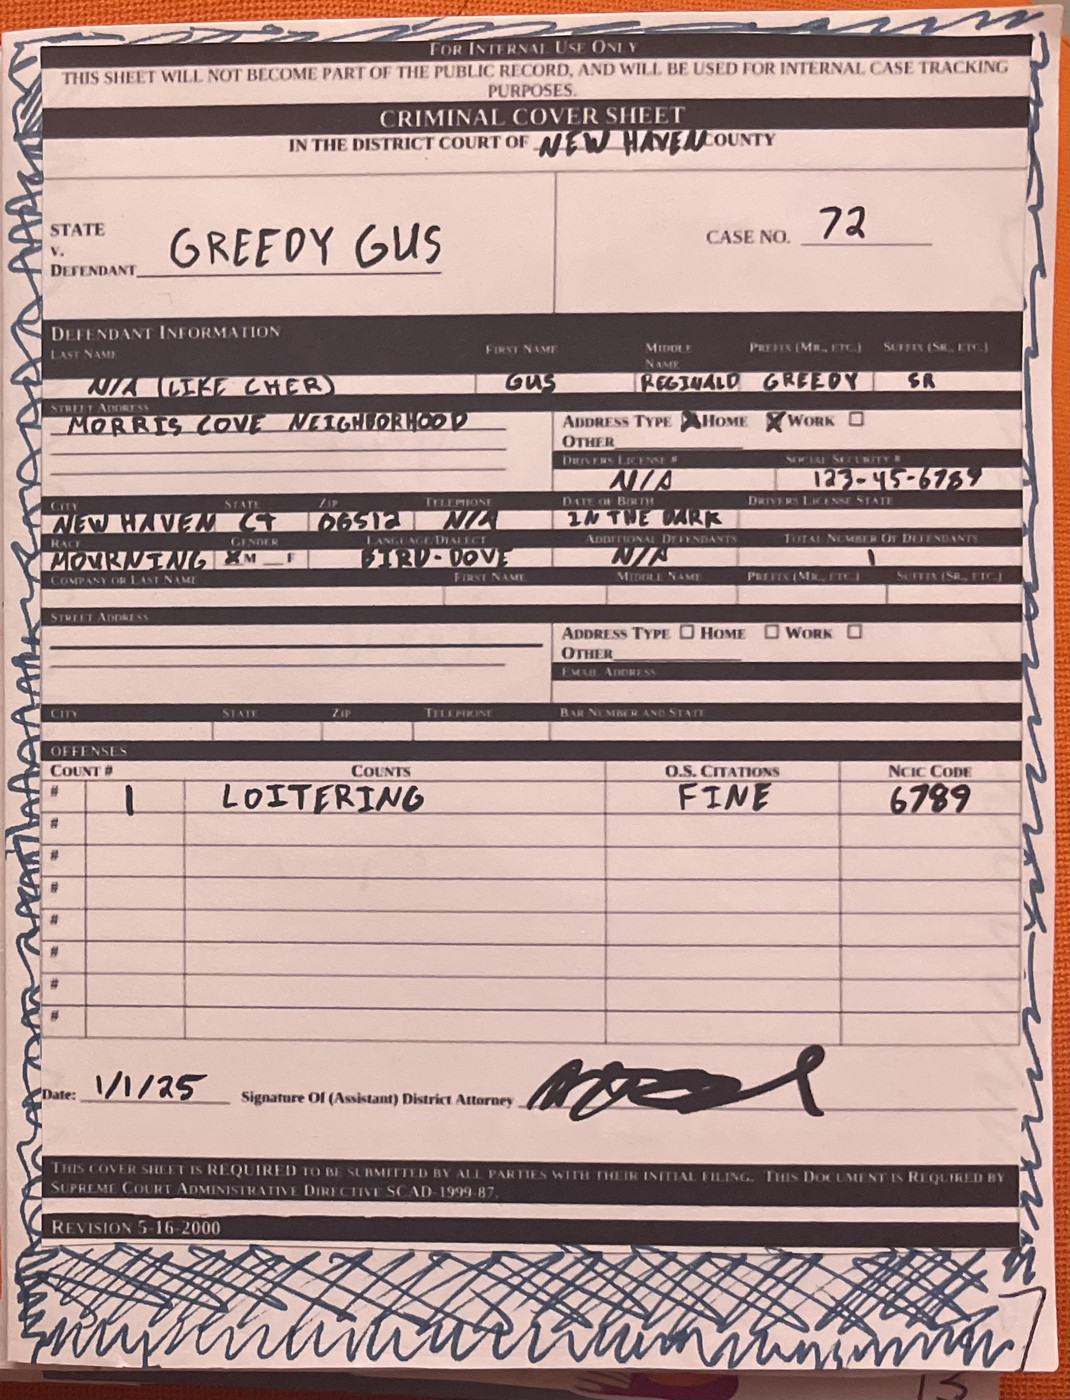 FOR INTERNAL USE ONLY
THIS SHEET WILL NOT BECOME PART OF THE PUBLIC RECORD, AND WILL BE USED FOR INTERNAL CASE TRACKING
PURPOSES.
CRIMINAL COVER SHEET
IN THE DISTRICT COURT OF NEW HAVEN COUNTY
STATE
V.
DEFENDANT GREEDY GUS
CASE NO. 72
DEFENDANT INFORMATION
LAST NAME FIRST NAME MIDDLE NAME PREFIX (MR., ETC.) SUFFIX (SR., ETC.)
N/A (LIKE CHER) GUS REGINALD GREEDY SR
STREET ADDRESS
MORRIS COVE NEIGHBORHOOD
ADDRESS TYPE X HOME X WORK ☐
OTHER
DRIVERS LICENSE # SOCIAL SECURITY #
N/A 123-45-6789
CITY STATE ZIP TELEPHONE DATE OF BIRTH DRIVERS LICENSE STATE
NEW HAVEN CT 06512 N/A IN THE DARK
RACE GENDER LANGUAGE/DIALECT ADDITIONAL DEFENDANTS TOTAL NUMBER OF DEFENDANTS
MOURNING X M __F BIRD-DOVE N/A 1
COMPANY OR LAST NAME FIRST NAME MIDDLE NAME PREFIX (MR., ETC.) SUFFIX (SR., ETC.)
STREET ADDRESS
ADDRESS TYPE ☐ HOME ☐ WORK ☐
OTHER
EMAIL ADDRESS
CITY STATE ZIP TELEPHONE BAR NUMBER AND STATE
OFFENSES
COUNT # COUNTS O.S. CITATIONS NCIC CODE
# 1 LOITERING FINE 6789
#
#
#
#
#
#
#
Date: 1/1/25 Signature Of (Assistant) District Attorney
THIS COVER SHEET IS REQUIRED TO BE SUBMITTED BY ALL PARTIES WITH THEIR INITIAL FILING. THIS DOCUMENT IS REQUIRED BY
SUPREME COURT ADMINISTRATIVE DIRECTIVE SCAD-1999-87.
REVISION 5-16-2000
13